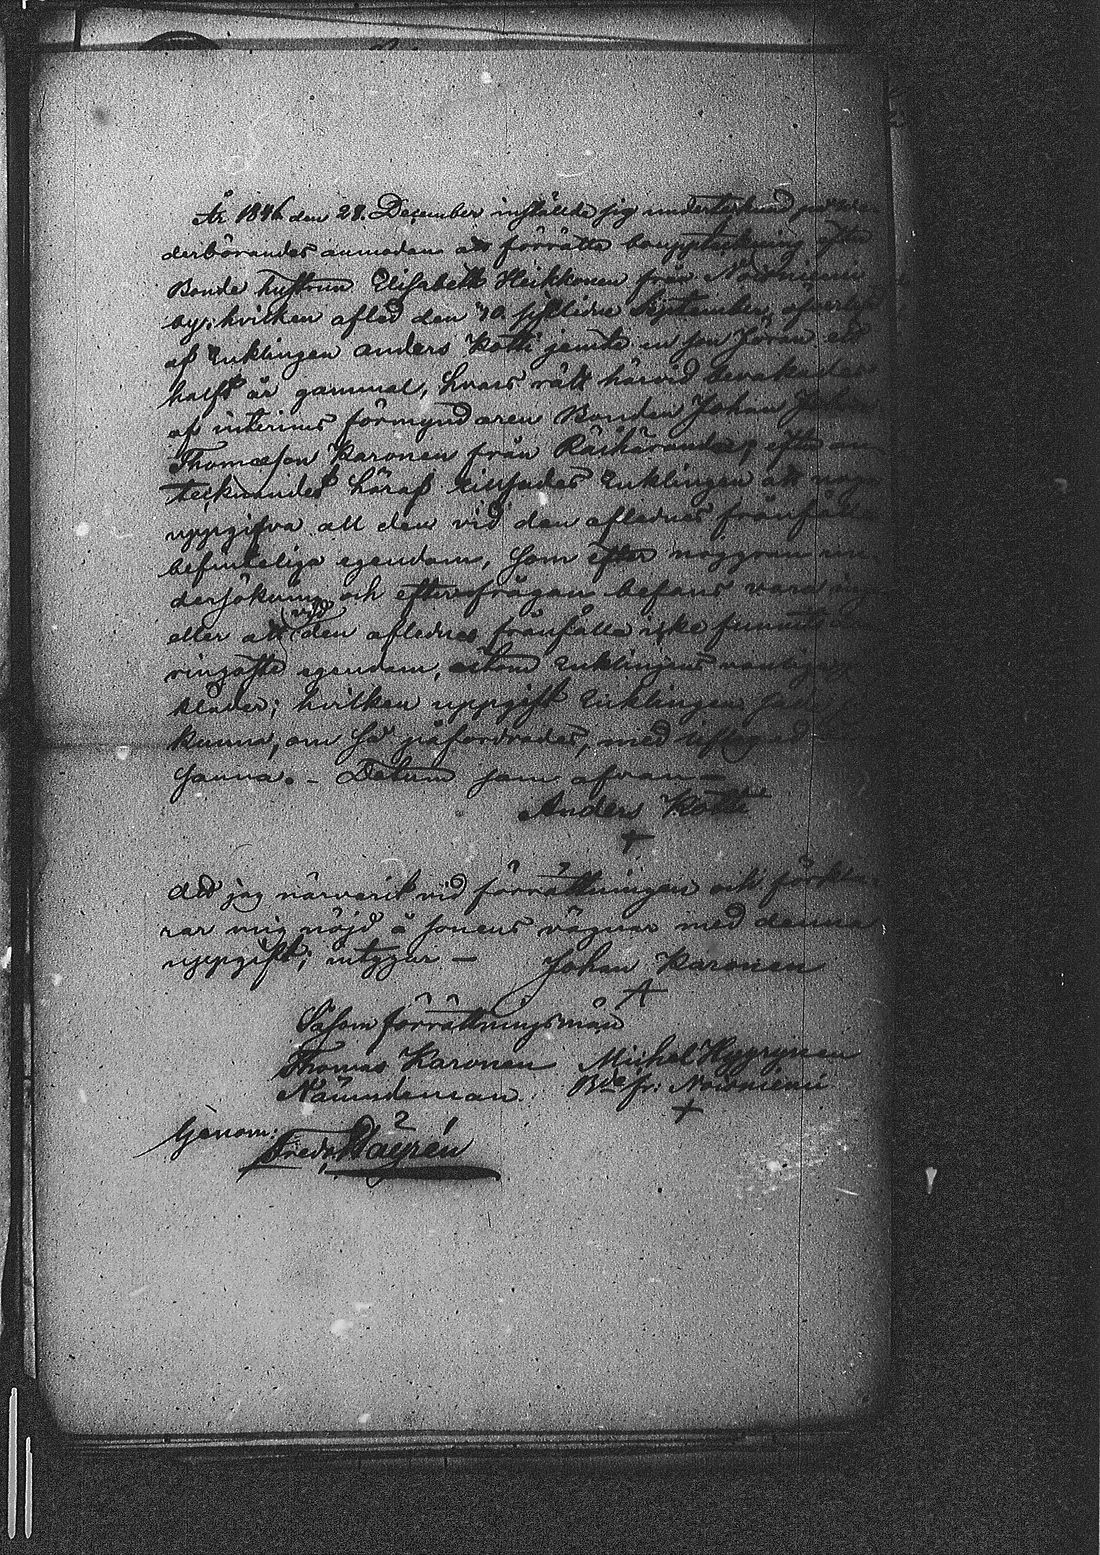 År 1846 den 28. December inställde sig undertecknad på
derbörandes anmodan att förrätta bouppteckning efter
Bonde hustrun Elisabeth Heikkonen från Nowmiemi
by; hvilken afled den 30 sistlidne September, efterlef
af Enklingen Anders Kotti jemte en son Jöran ett
halft år gammal, hvars rätt härvid bevakades
af interims förmyndaren Bonden Johan
Thomæson Karonen från efter
tecknandet häraf Enklingen att
uppgifva all den vid den aflednes frånfälle
befinteliga egendom, som efter noggran un
dersökning och efterfrågan befans vara
eller att vid den aflednas frånfälle icke funnits
ringaste egendom, utom Enklingens
kläder; hvilken uppgift Enklingen sade
kunna, om så påfordrades, med
sanna. – Datum som ofvan –
Anders Kotti
+
Att jag närvarit vid förrättningen och förkla
rar mig nöjd å sonens vägnar med denna
uppgift; intygar — Johan Karonen
A
Såsom förrättningsmän
Thomas Karonen Michel Hyyrynen
Nämndeman Bde fr: Nowniemi
+
Genom: